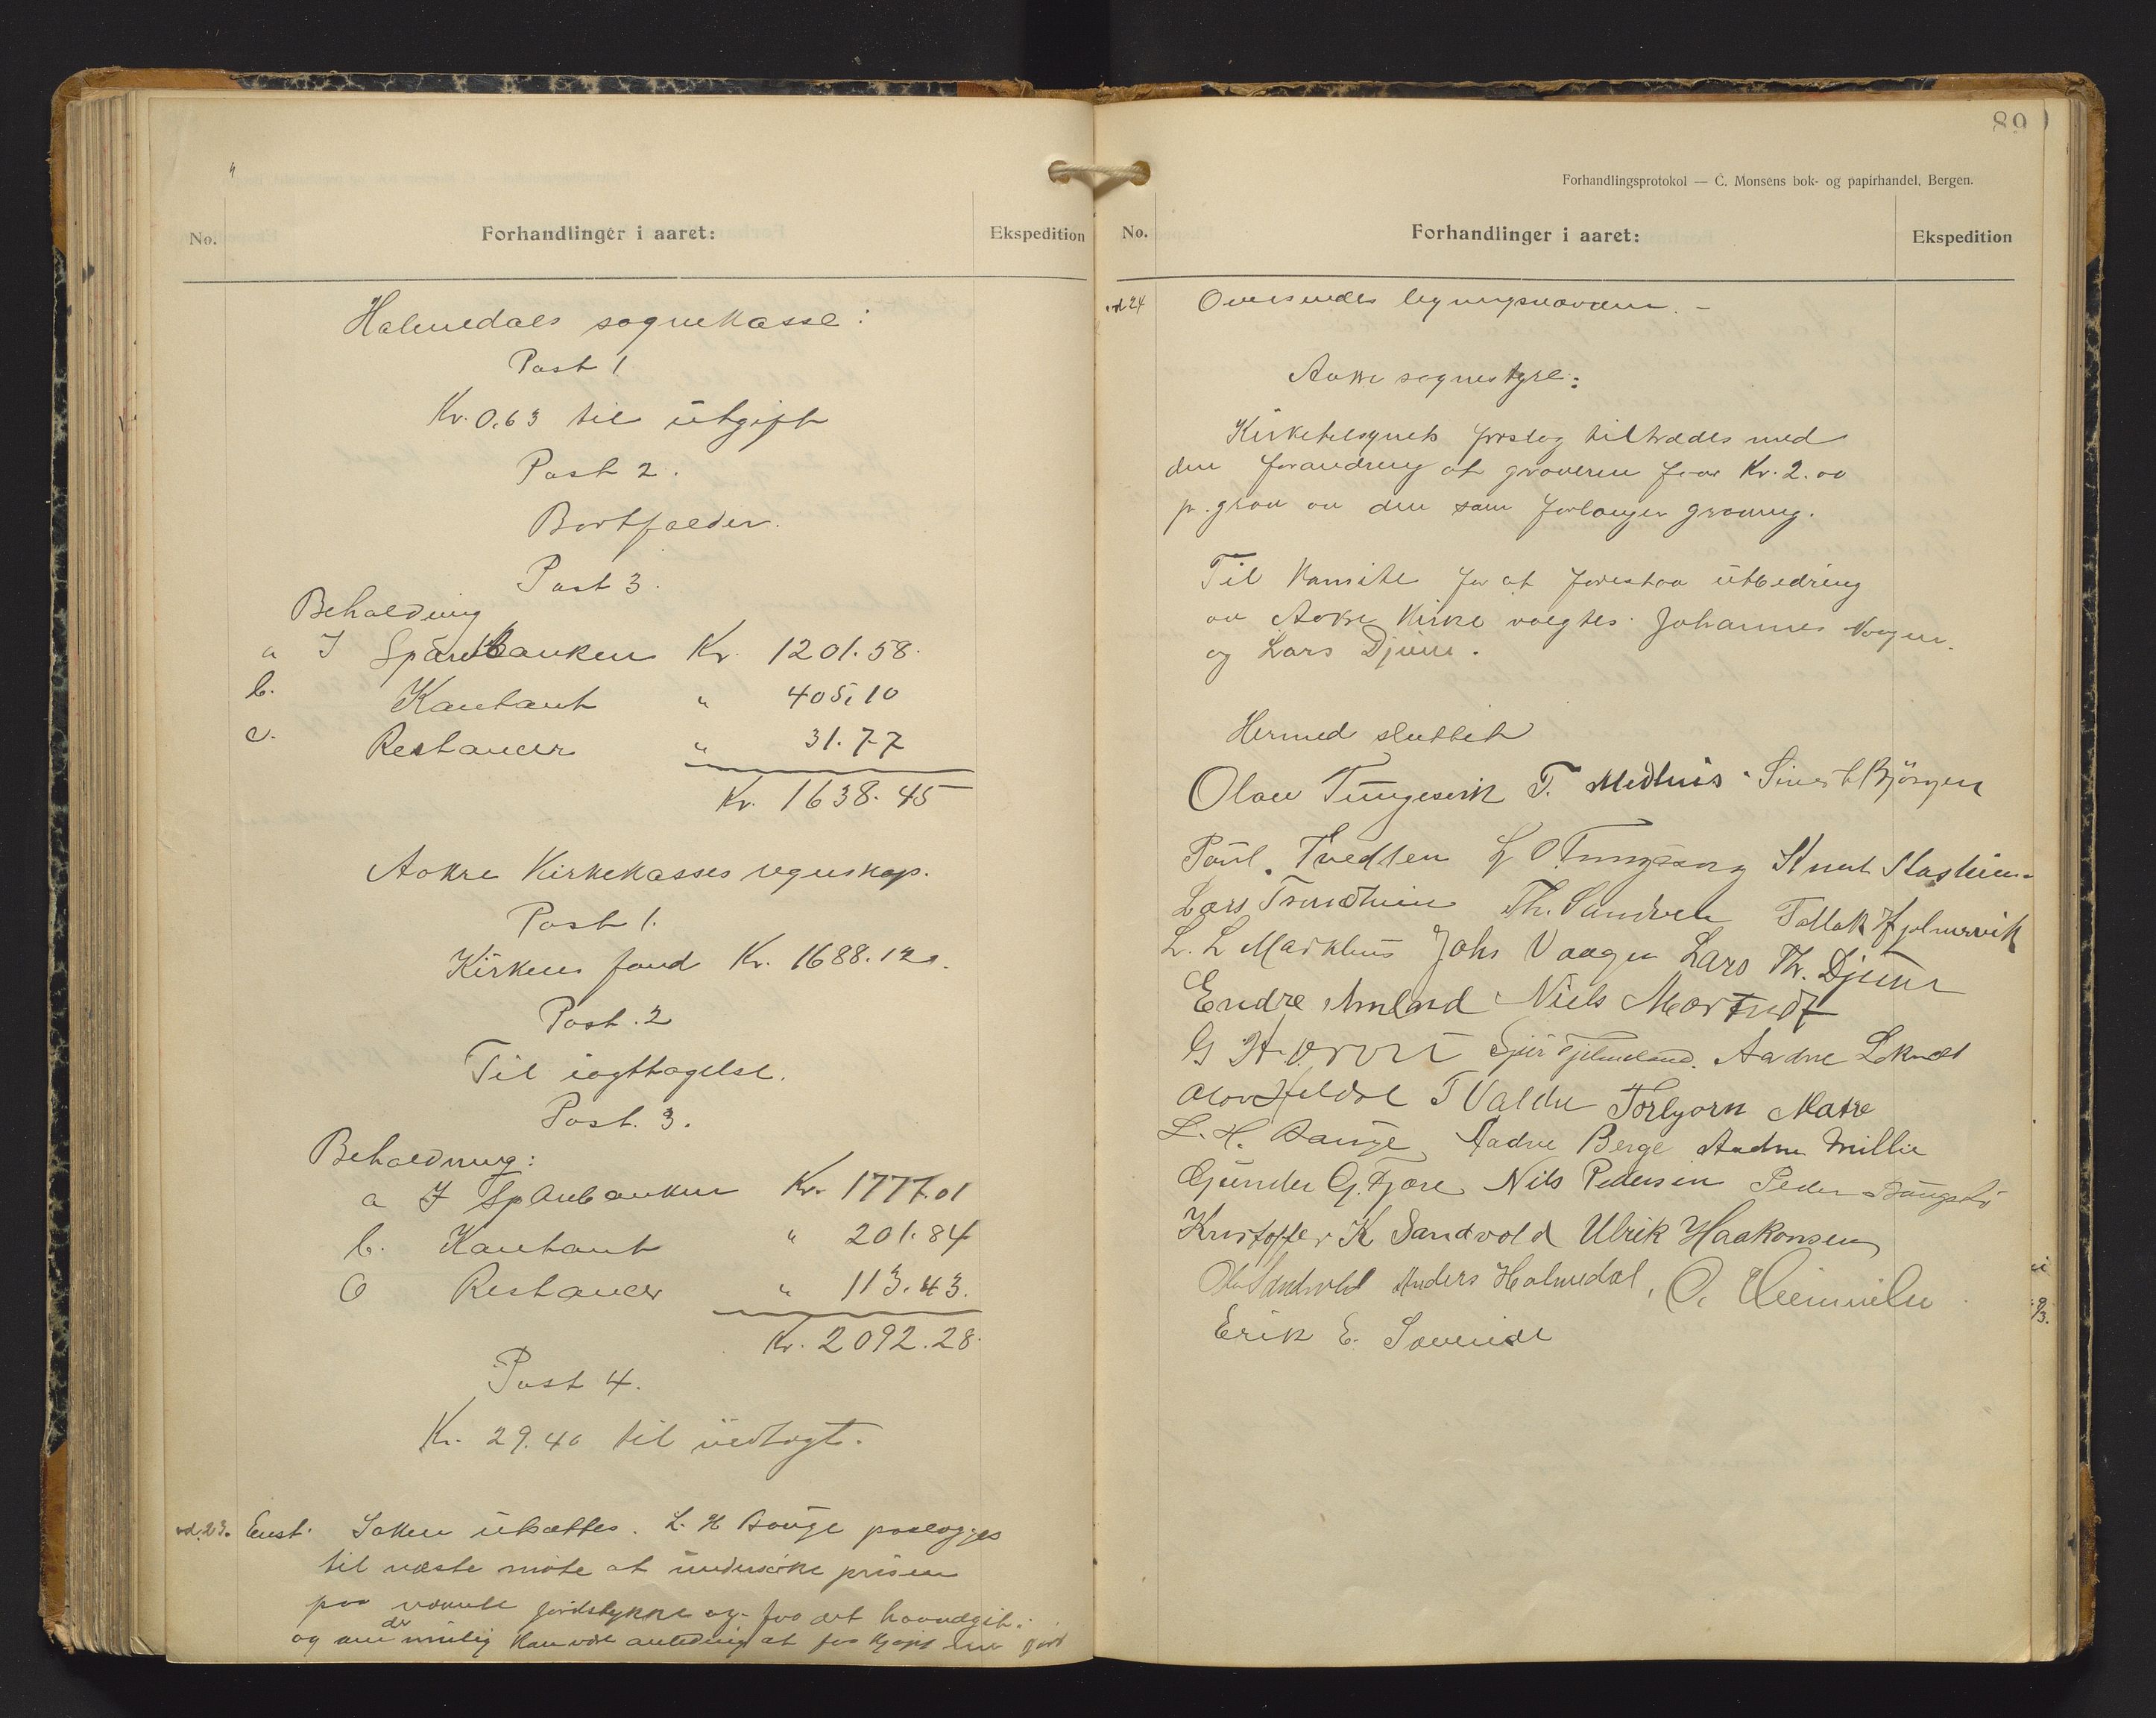 No.
Forhandlinger i aaret:
Ekspedition
Holmedals sognekasse:
Post 1
Kr. 0.63 til utgift
Post 2.
Bortfalder.
Post 3.
Beholdning
a I Sparebanken Kr. 1201.58.
b. Kontant " 405.10
c. Restancer " 31.77
Kr. 1638.45
Aakre Kirkekasses regnskap.
Post 1.
Kirkens fond Kr. 1688.12
Post. 2
Til iagttagelse.
Post. 3.
Beholdning:
a I Sparebanken Kr. 1777.01
b. Kontant " 201.84
c Restancer " 113.43.
Kr. 2092.28.
Post 4.
Kr. 29.40 til utdrag
ad 23. Enst. Saken utsættes. L. H Bauge paalægges
til næste møte at undersøke prisen
paa nævnte jordstykke og faa det haandgit.
og om der mulig kan være anledning at faa kjøpt
89
Forhandlingsprotokol — C. Monsens bok- og papirhandel, Bergen.
No.
Forhandlinger i aaret:
Ekspedition
ad 24 Oversendes ligningsnævnden. –
Aakre sognestyre:
Kirketilsynets forslag tiltrædes med
den forandring at graveren faar Kr. 2.00
pr. grav av den som forlanger graving.
Til komite for at forestaa utbedring
av Aakre kirke valgtes Johannes Vaagen
og Lars Djuve.
Hermed sluttet
Olav Tungesvik T. Medhus Sivert Bjørgen
Paul Tvedten Knut
Lars Th. Sandven Tollak Hjelmervik
L. L Markhus Johs Vaagen Lars Th. Djuve
Endre Amland Niels
G
Aadne
T Valdre Torbjørn Matre
L. H. Bauge Aadne Berge Aadne Millie
Gunder G. Fjære Nils Pedersen Peder
Kristoffer K Sandvold Ulrik Haakonsen
Ole Sandvold Anders Holmedal, O.
Erik E.